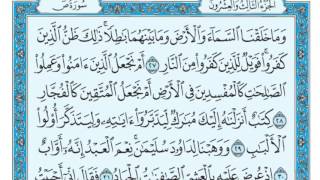 الجزء الثالث والعشرون
سورة ص
وَمَا خَلَقْنَا ٱلسَّمَآءَ وَٱلْأَرْضَ وَمَا بَيْنَهُمَا بَٰطِلًا ۚ ذَٰلِكَ ظَنُّ ٱلَّذِينَ
كَفَرُوا۟ ۚ فَوَيْلٌ لِّلَّذِينَ كَفَرُوا۟ مِنَ ٱلنَّارِ ٢٧ أَمْ نَجْعَلُ ٱلَّذِينَ ءَامَنُوا۟ وَعَمِلُوا۟
ٱلصَّٰلِحَٰتِ كَٱلْمُفْسِدِينَ فِى ٱلْأَرْضِ أَمْ نَجْعَلُ ٱلْمُتَّقِينَ كَٱلْفُجَّارِ
٢٨ كِتَٰبٌ أَنزَلْنَٰهُ إِلَيْكَ مُبَٰرَكٌ لِّيَدَّبَّرُوٓا۟ ءَايَٰتِهِۦ وَلِيَتَذَكَّرَ أُو۟لُوا۟
ٱلْأَلْبَٰبِ ٢٩ وَوَهَبْنَا لِدَاوُۥدَ سُلَيْمَٰنَ ۚ نِعْمَ ٱلْعَبْدُ ۖ إِنَّهُۥٓ أَوَّابٌ
٣٠ إِذْ عُرِضَ عَلَيْهِ بِٱلْعَشِىِّ ٱلصَّٰفِنَٰتُ ٱلْجِيَادُ ٣١ فَقَالَ إِنِّىٓ أَحْبَبْتُ